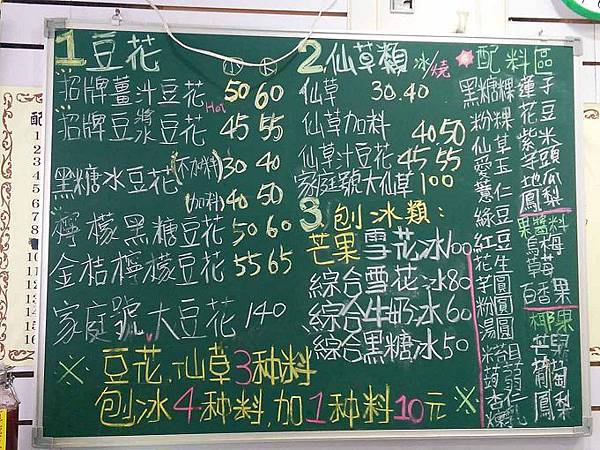 1豆花 小 大
招牌薑汁豆花 50 60
Hot
招牌豆漿豆花 45 55
黑糖冰豆花 (不加料) 30 40
(加料) 40 50
檸檬黑糖豆花 50 60
金桔檸檬豆花 55 65
家庭號大豆花 140
2仙草類 冰/燒
仙草 30.40
仙草加料 40 50
仙草汁豆花 45 55
家庭號大仙草 100
3刨冰類:
芒果雪花冰100
綜合雪花冰80
綜合牛奶冰60
綜合黑糖冰50
※豆花、仙草3种料
刨冰4种料,加1种料10元※
配料區
黑糖粿
粉粿
仙草
愛玉
薏仁
綠豆
紅豆
花生
芋圓
粉圓
湯圓
蒟蒻
杏仁
蓮子
花豆
紫米
芋頭
地瓜
鳳梨
果醬料
草莓
百香果
椰果
芒果
葡萄
鳳梨
配
1
2
3
4
5
6
7
8
10
11
12
13
14
15
16